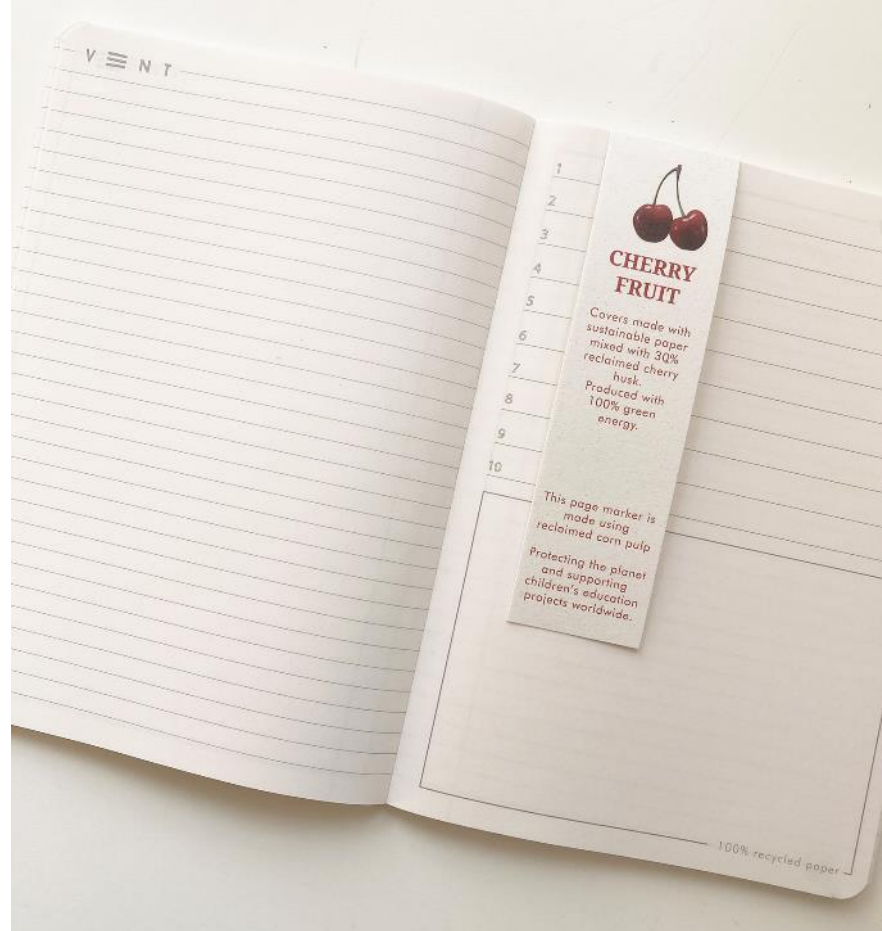 V☰NT
1
2
3
4
5
6
7
8
9
10
CHERRY
FRUIT
Covers made with
sustainable paper
mixed with 30%
reclaimed cherry
husk.
Produced with
100% green
energy.
This page marker is
made using
reclaimed corn pulp
Protecting the planet
and supporting
children's education
projects worldwide.
100% recycled paper